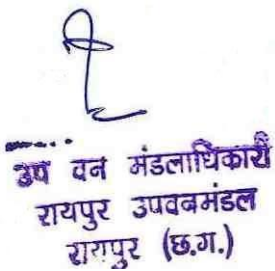 उप वन मंडलाधिकारी
रायपुर उपवनमंडल
रायपुर (छ.ग.)